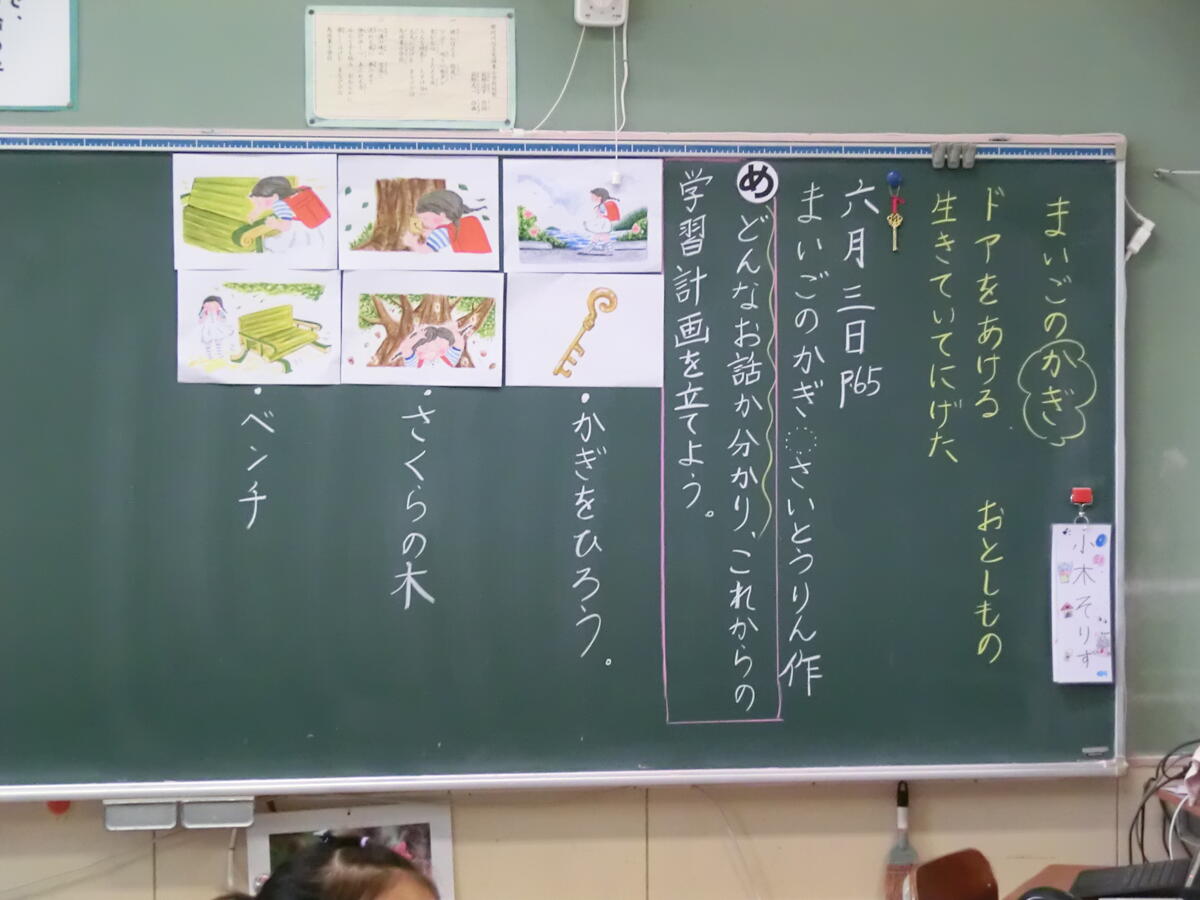 まいごのかぎ
ドアをあける おとしもの
生きていてにげた
六月三日 P.65
まいごのかぎ さいとうりん作
め どんなお話か分かり、これからの
学習計画を立てよう。
・かぎをひろう。
・さくらの木
・ベンチ